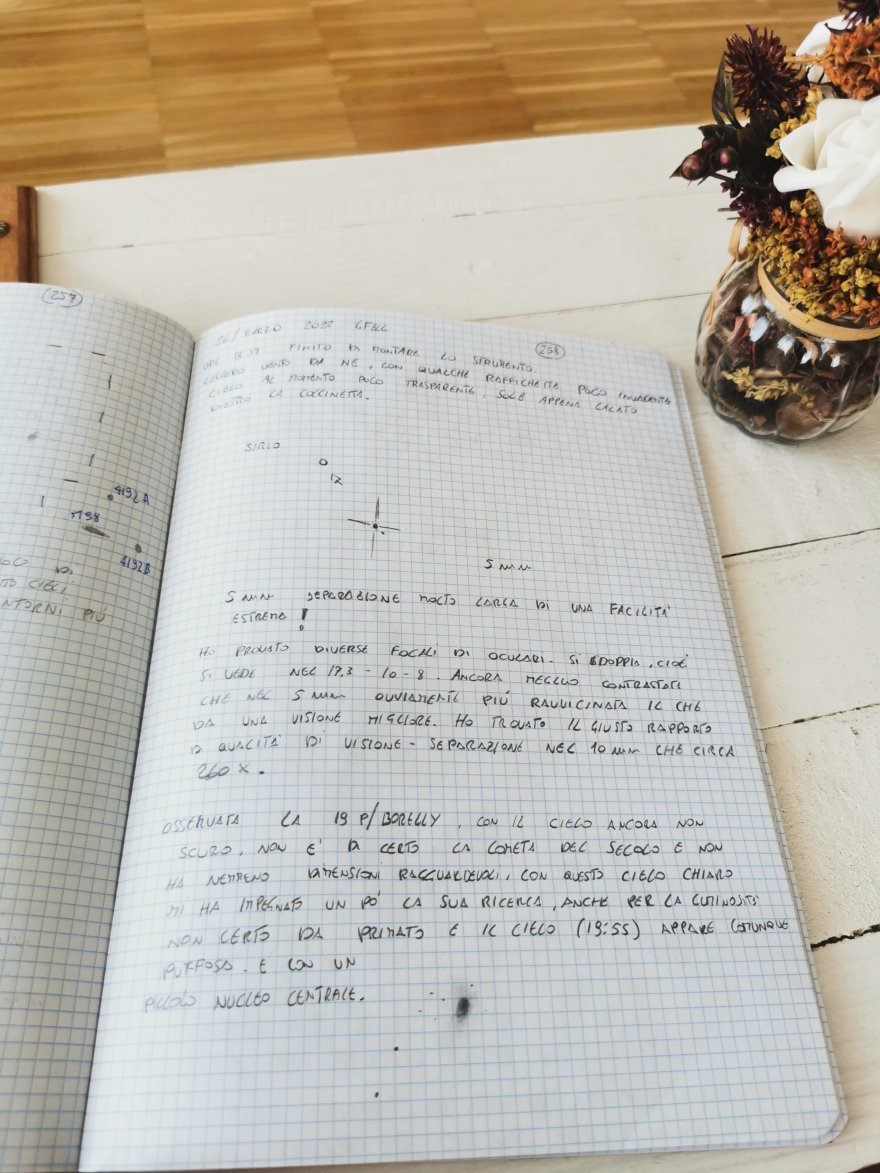 257
4192 A
M98
4192B
DI
CIELI
PIÚ
26/MARZO 2022
238
ORE 18:37 FINITO DI MONTARE LO STRUMENTO
LEGGERO VENTO DA NE, CON QUALCHE RAFFICHETTA POCO INVADENTE
CIELO AL MOMENTO POCO TRASPARENTE, SOLE APPENA CALATO
DIETRO LA COLLINETTA.
SIRIO
5 mm
5 mm SEPARAZIONE MOLTO LARGA DI UNA FACILITÀ
ESTREMA !
HO PROVATO DIVERSE FOCALI DI OCULARI. SI SDOPPIA, CIOÈ
SI VEDE NEL 17,3 - 10 - 8. ANCORA MEGLIO CONTRASTATA
CHE NEL 5 mm OVVIAMENTE PIÚ RAVVICINATA IL CHE
DA UNA VISIONE MIGLIORE. HO TROVATO IL GIUSTO RAPPORTO
DI QUALITÀ DI VISIONE - SEPARAZIONE NEL 10 mm CHE CIRCA
260 X.
OSSERVATA LA 19 P/BORELLY, CON IL CIELO ANCORA NON
SCURO, NON E' DI CERTO LA COMETA DEL SECOLO E NON
HA NEMMENO DIMENSIONI RAGGUARDEVOLI, CON QUESTO CIELO CHIARO
MI HA IMPEGNATO UN PO' LA SUA RICERCA, ANCHE PER LA LUMINOSITÀ
NON CERTO DA PRIMATO E IL CIELO (19:55) APPARE COMUNQUE
PUFFOSA. E CON UN
PICCOLO NUCLEO CENTRALE.